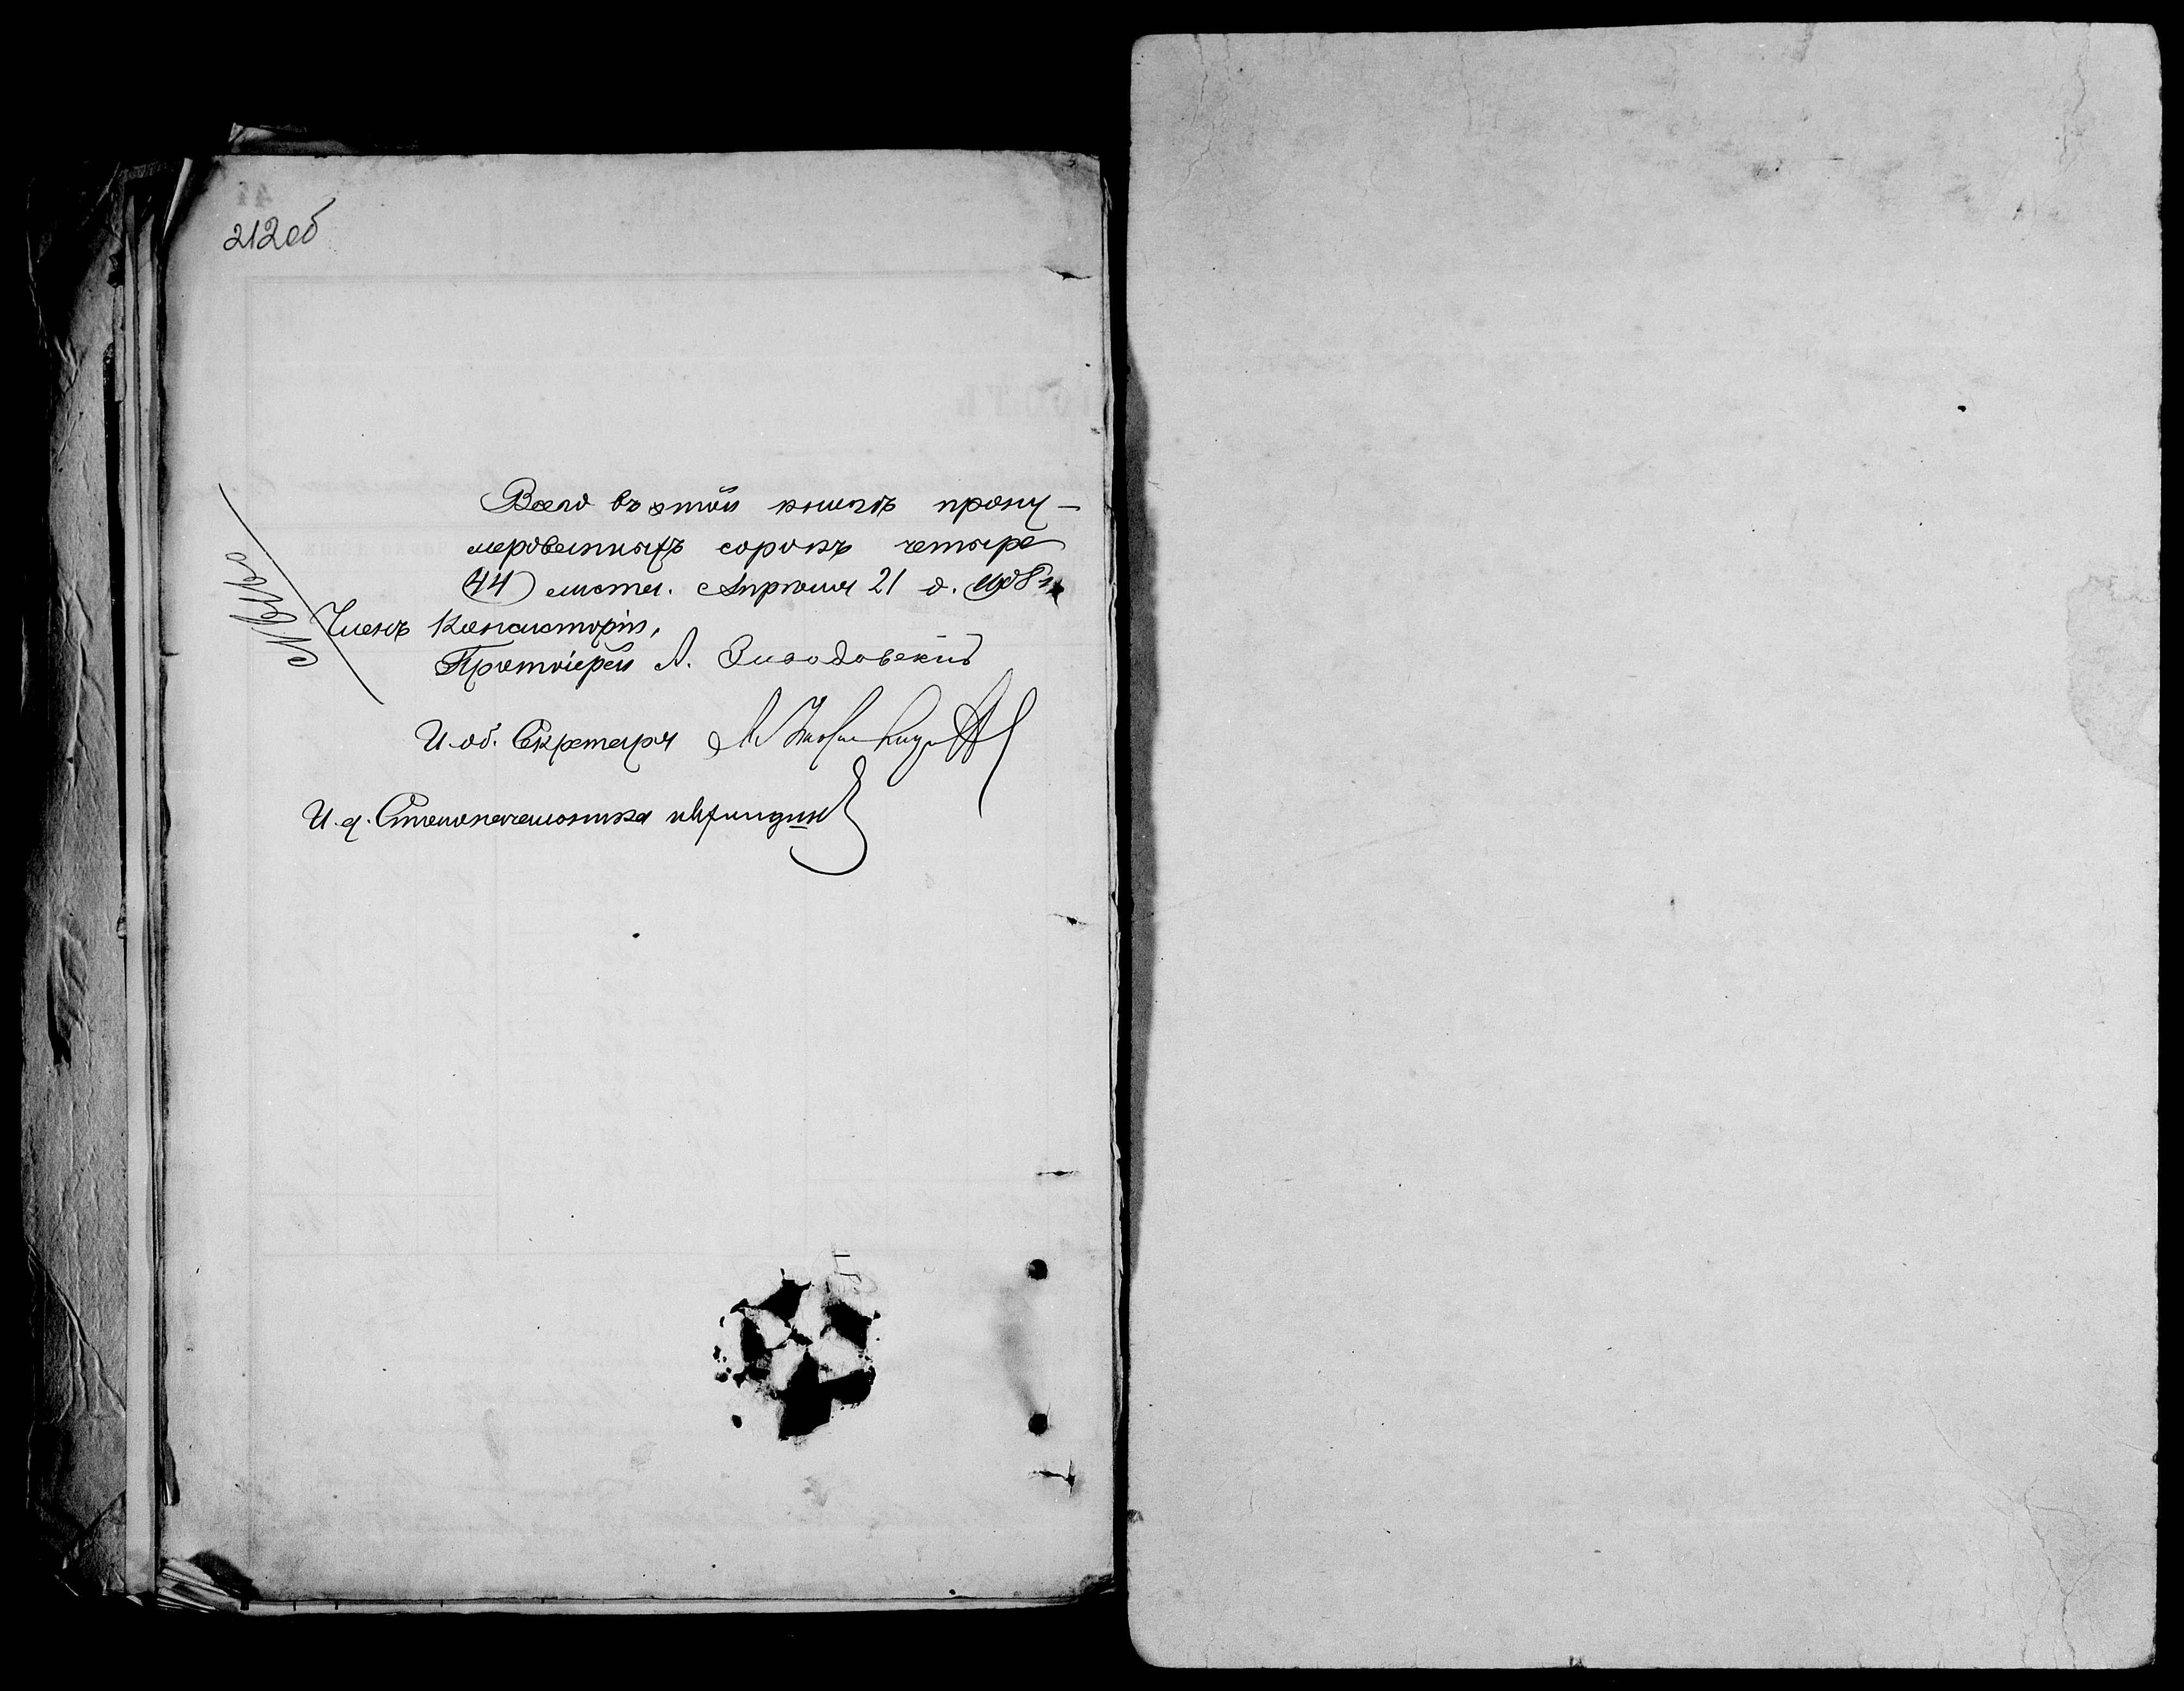 212об
Всего въ этой книгѣ прону-
мерованныхъ сорокъ четыре
(44) листа. Апрѣля 21 д. 1908 г.
Членъ Консисторіи,
Протоіерей А.
И. об. Секретаря
И. д. Столоначальника